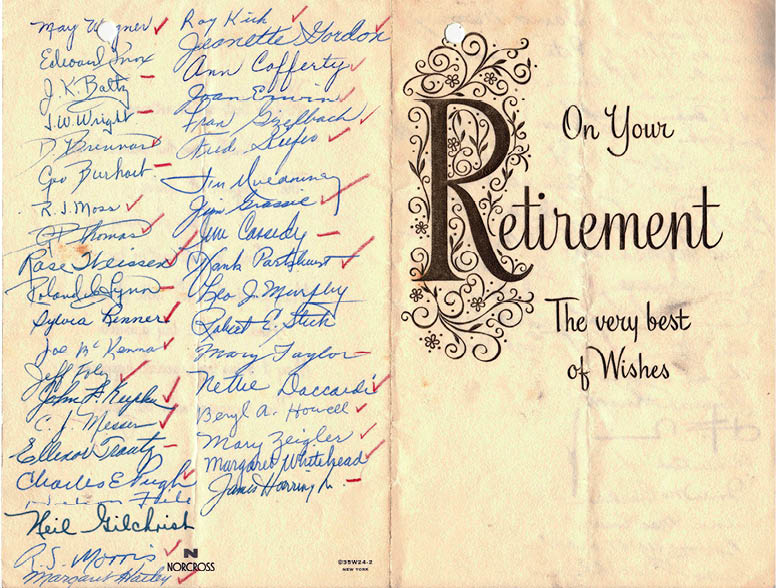 May Wagner
Edward Knox
J. K. Baltz
J. W. Wright
D. Brennan
Geo Burkhart
R. J. Moss
Thomas
Rose Weissen
Roland Lynn
Sylvia Renner
Joe McKenna
Jeff Foley
John F.
C. J. Messer
Ellinor Trautz
Charles E Pugh
Neil Gilchrist
R. S. Morris
Margaret Hatley
Ray Kirk
Jeanette Gordon
Ann Cofferty
Joan Erwin
Fran Gizelbach
Fred
Jim
Jim Grassie
Jim Cassidy
Hank Parkhurst
Leo J. Murphy
Robert E. Stick
Mary Taylor
Nettie Daccardi
Beryl A. Howell
Mary Zeigler
Margaret Whitehead
James Harring Jr.
N
NORCROSS
©35W24-2
NEW YORK
On Your
Retirement
The very best
of Wishes